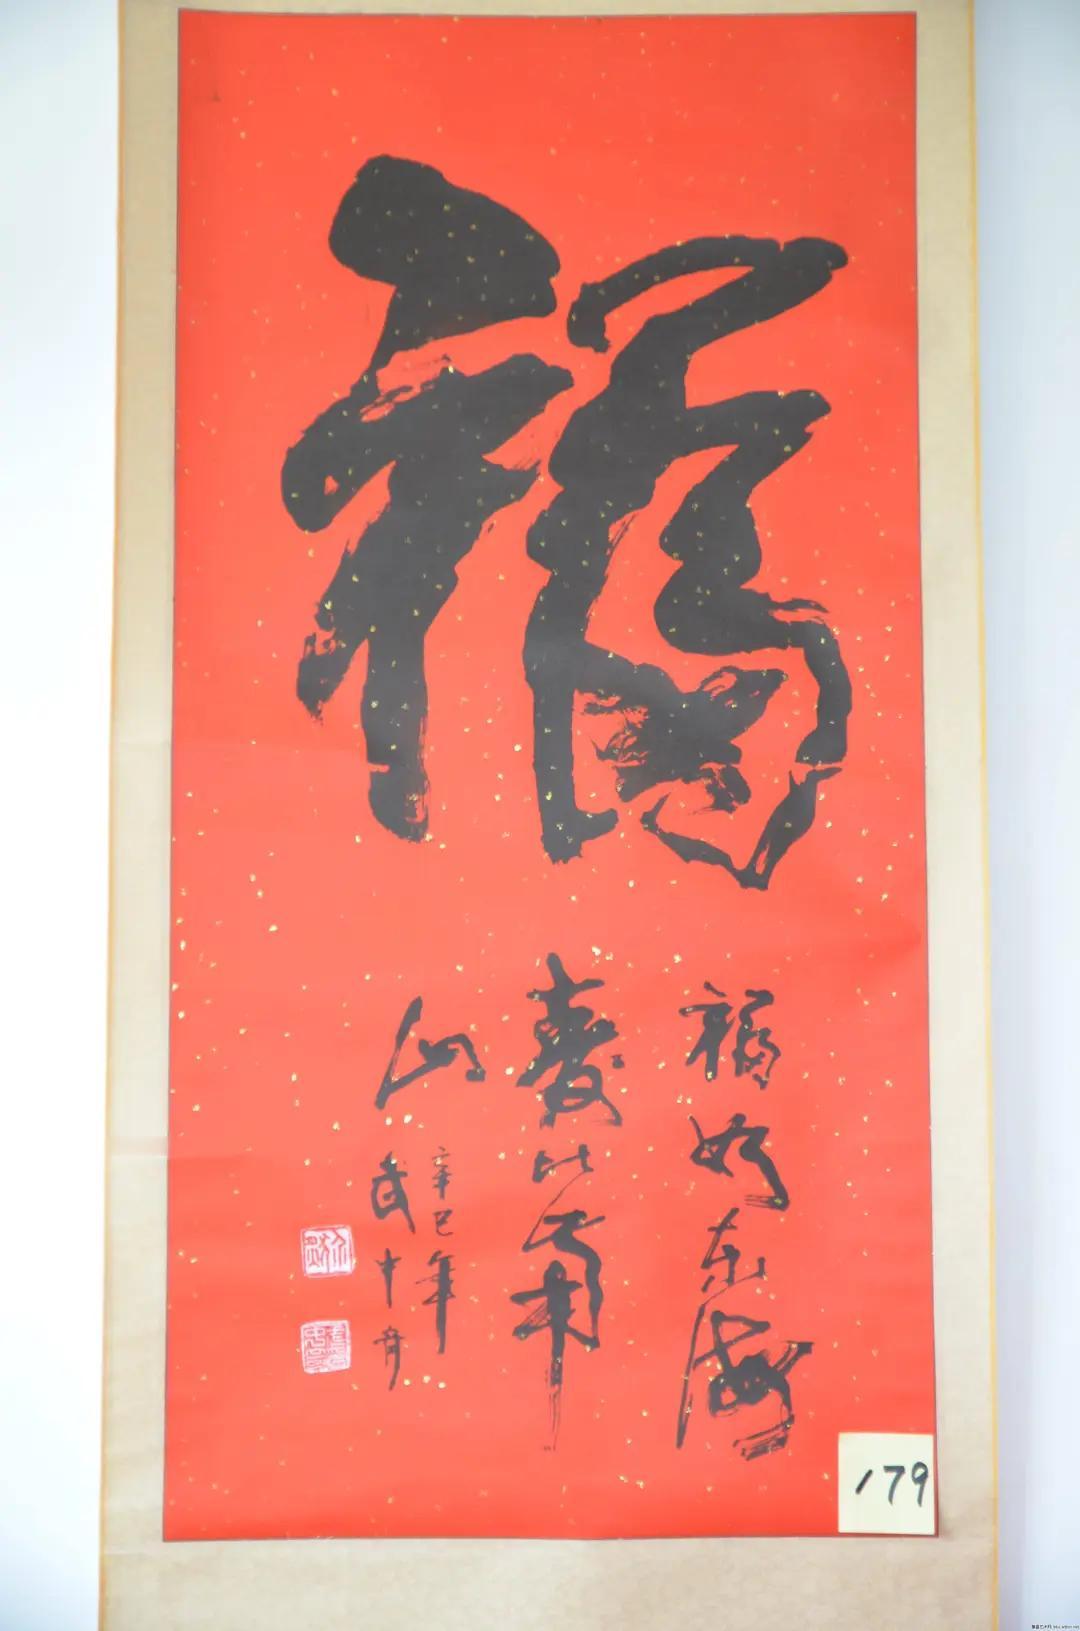 福
福如东海
寿比南
山
辛巳年
武中奇
179